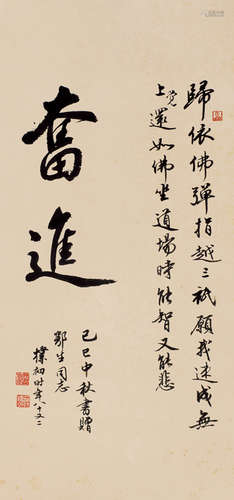 歸依佛彈指越三祇願我速成無
上覺還如佛坐道場時能智又能悲
奮進
己巳中秋書贈
鄂生同志
樸初时年八十又二